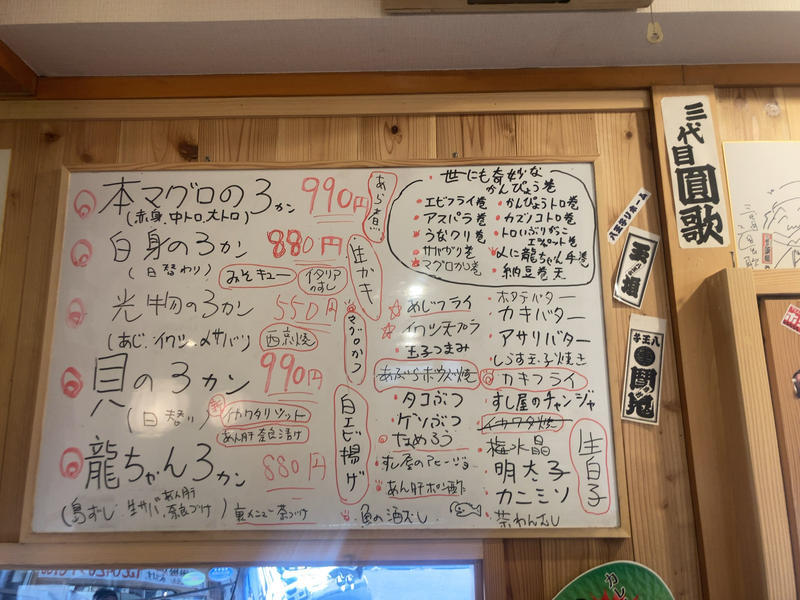 本マグロの3カン 990円
(赤身.中トロ.大トロ)
白身の3カン 880円
(日替わり)
みそキュー
イタリアのすし
光物の3カン 550円
(あじ.イワシ.〆サバ)
西京焼
貝の3カン 990円
(日替り)
イカワタリゾット
あん肝奈良漬け
龍ちゃん3カン 880円
(島ずし.生サバ.あん肝奈良づけ)
裏メニュー茶づけ
あら煮
生かき
マグロかつ
白エビ揚げ
世にも奇妙な
かんぴょう巻
エビフライ巻
アスパラ巻
うなクリ巻
サバがり巻
マグロかつ巻
かんぴょうトロ巻
カズノコトロ巻
トロいぶりがっこ
納豆巻天
あじフライ
イワシ天プラ
玉子つまみ
あぶらボウズ焼
タコぶつ
ゲソぶつ
なめろう
すし屋のアヒージョ
あん肝ポン酢
魚の酒むし
ホタテバター
カキバター
アサリバター
しらす玉子焼き
カキフライ
すし屋のチャンジャ
イカワタ焼
梅水晶
明太子
カニミソ
茶わんむし
生白子
三代目圓歌